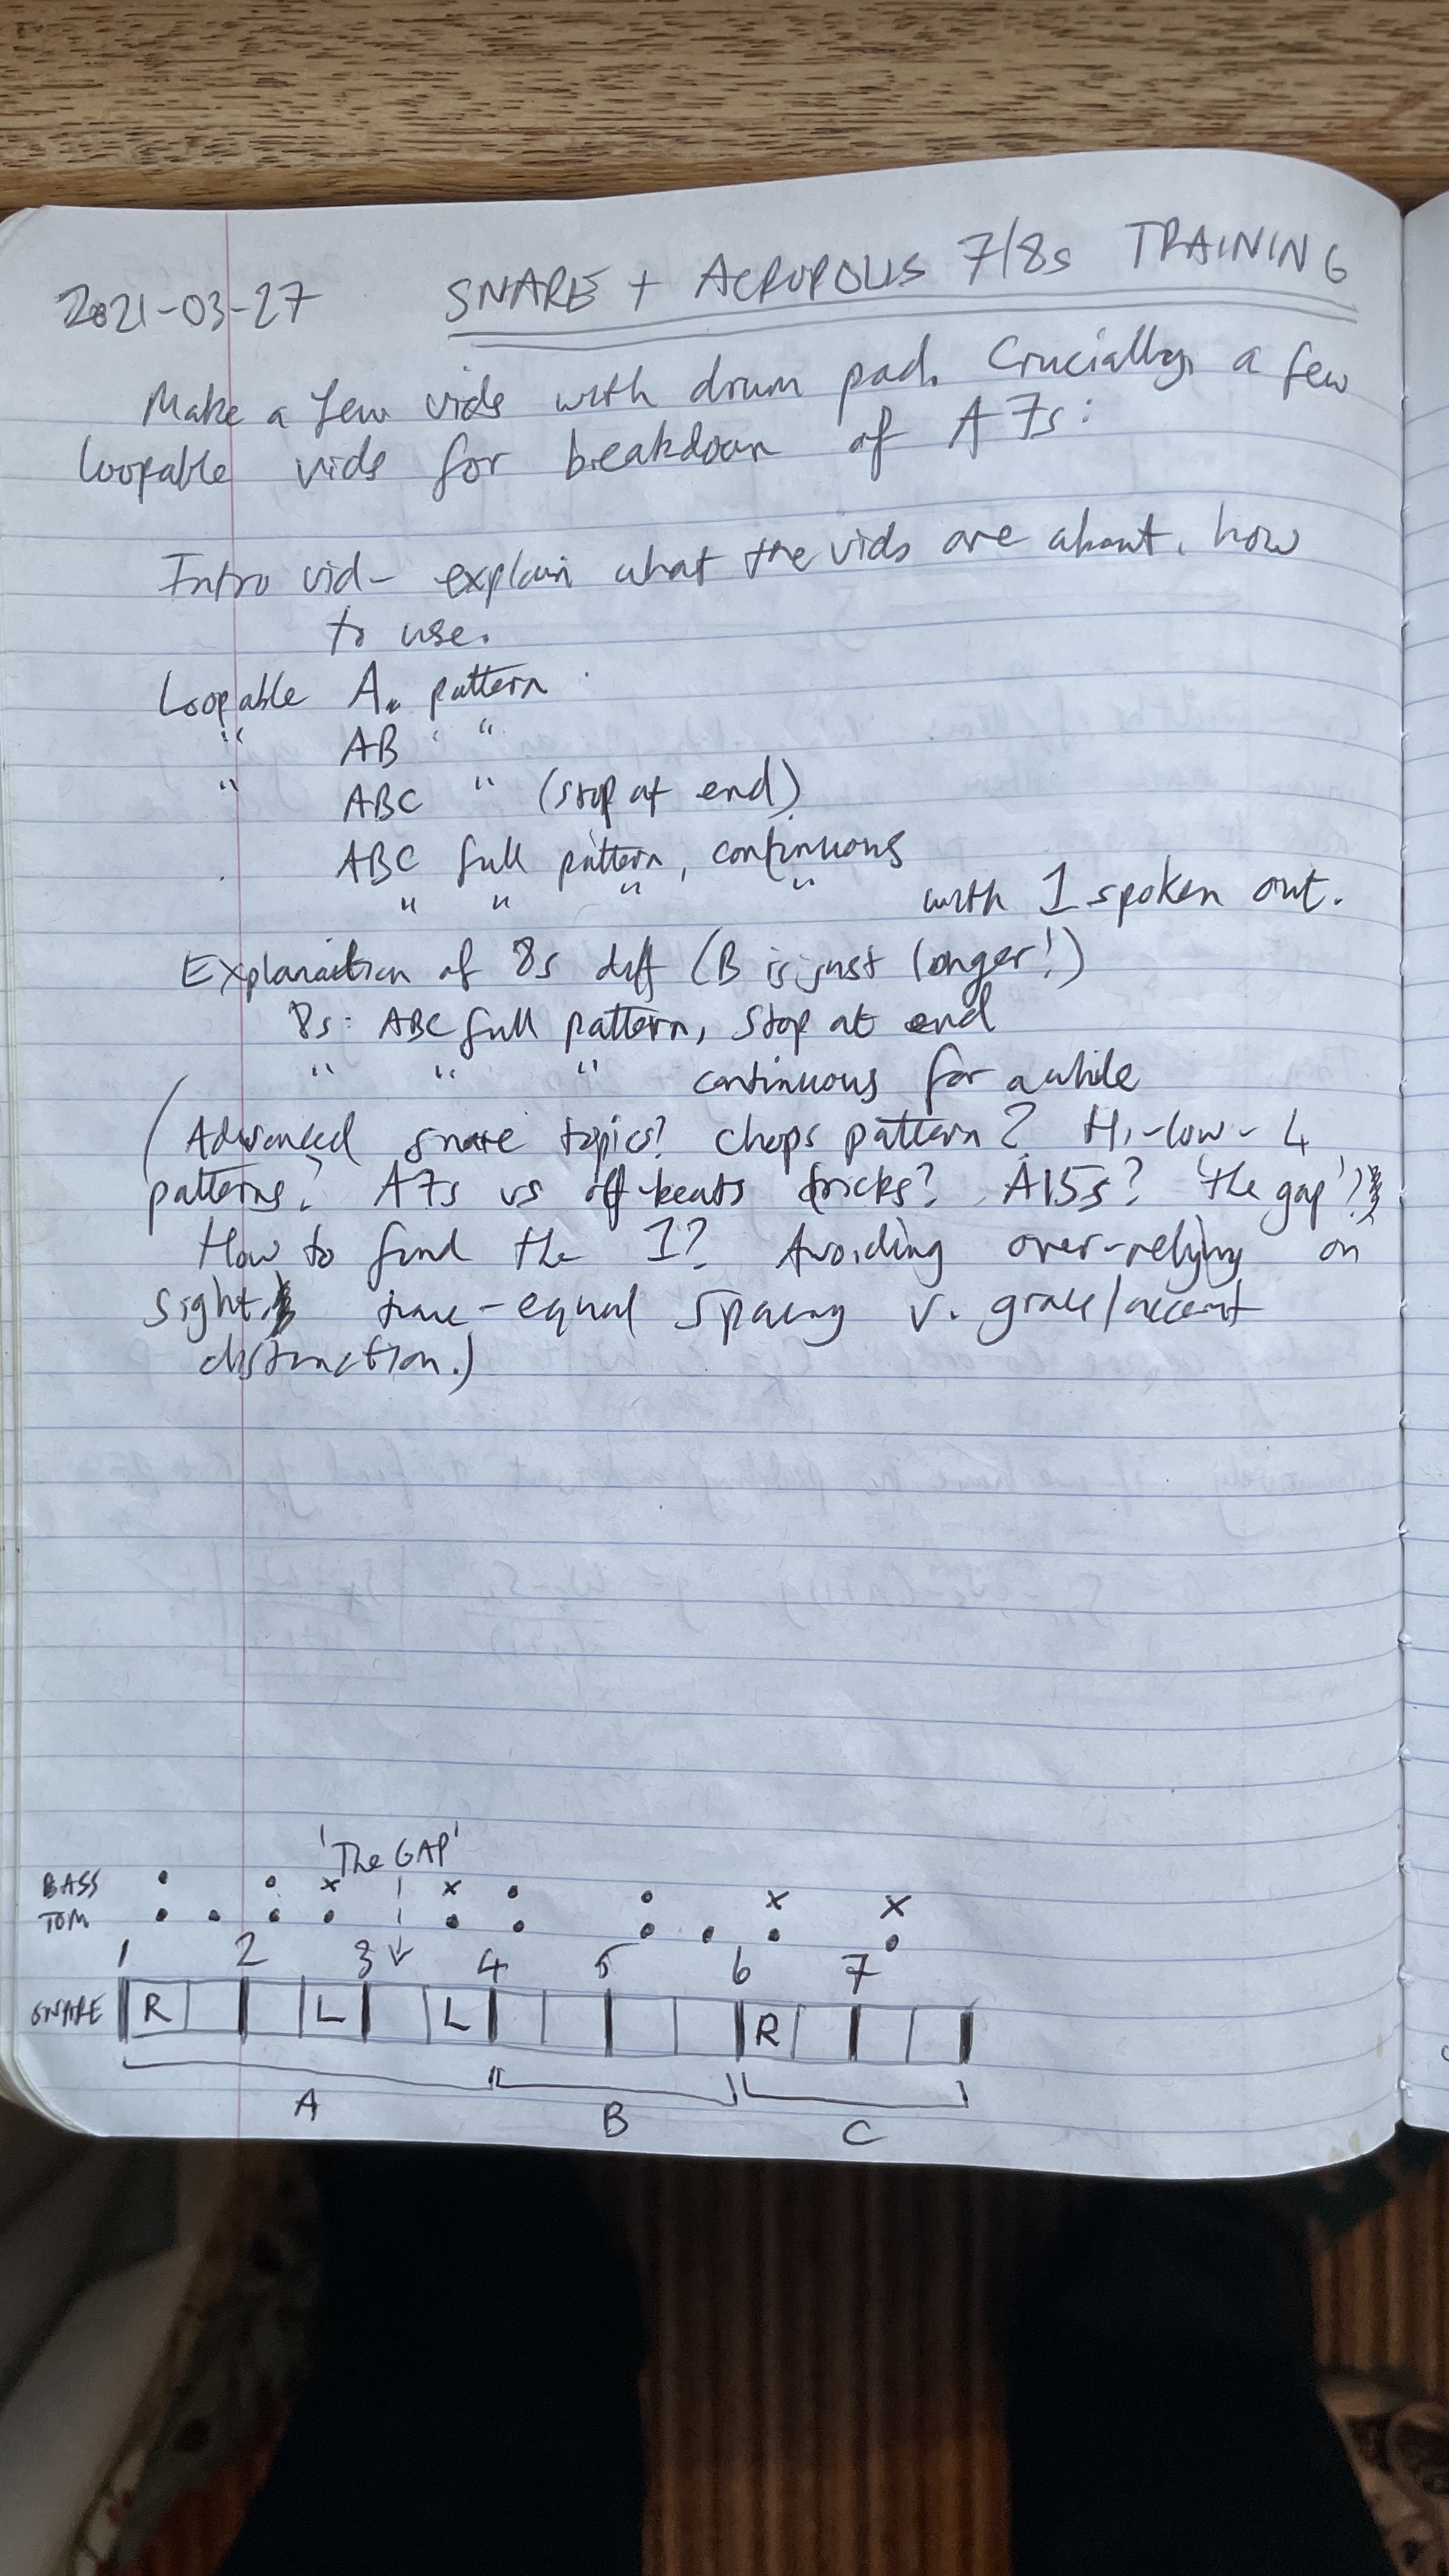 2021-03-27 SNARE + ACROPOLIS 7/8s TRAINING
Make a few vids with drum pad. Crucially, a few
loopable vids for breakdown of A7s:
Intro vid - explain what the vids are about, how
to use.
Loopable A pattern
" AB "
" ABC " (stop at end)
ABC full pattern, continuous
" " " " with 1 spoken out.
Explanation of 8s diff (B is just longer!)
8s: ABC full pattern, stop at end
" " " continuous for a while
(Advanced snare topics? Chops pattern? Hi-low-4
patterns? A7s vs off-beats tricks? A15s? 'the gap'?
How to find the 1? Avoiding over-relying on
sight, true-equal spacing v. grace/accent
distinction.)
'The GAP'
BASS • • x x • • x x
TOM • • • • • • • • • •
1 2 3 ↓ 4 5 6 7
SNARE R L L R
A B C